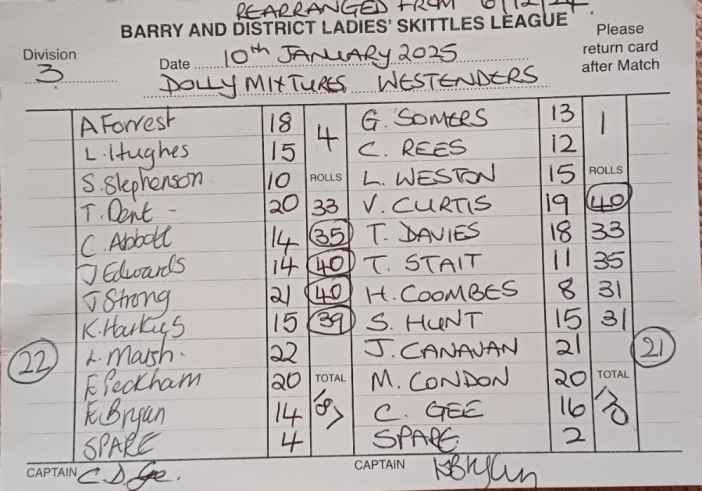 REARRANGED FROM 6/12/24.
BARRY AND DISTRICT LADIES' SKITTLES LEAGUE
Please return card after Match
Division 3
Date 10th JANUARY 2025
DOLLY MIXTURES WESTENDERS
A Forrest 18 4 G. SOMERS 13 1
L. Hughes 15 C. REES 12
S. Stephenson 10 ROLLS L. WESTON 15 ROLLS
T. Dent - 20 33 V. CURTIS 19 40
C. Abbott 14 35 T. DAVIES 18 33
J Edwards 14 40 T. STAIT 11 35
J Strong 21 40 H. COOMBES 8 31
K. 15 39 S. HUNT 15 31
22 L. Marsh. 22 J. CANAVAN 21 21
F. Peckham 20 TOTAL M. CONDON 20 TOTAL
K. Bryan 14 187 C. GEE 16 170
SPARE 4 SPARE 2
CAPTAIN CAPTAIN